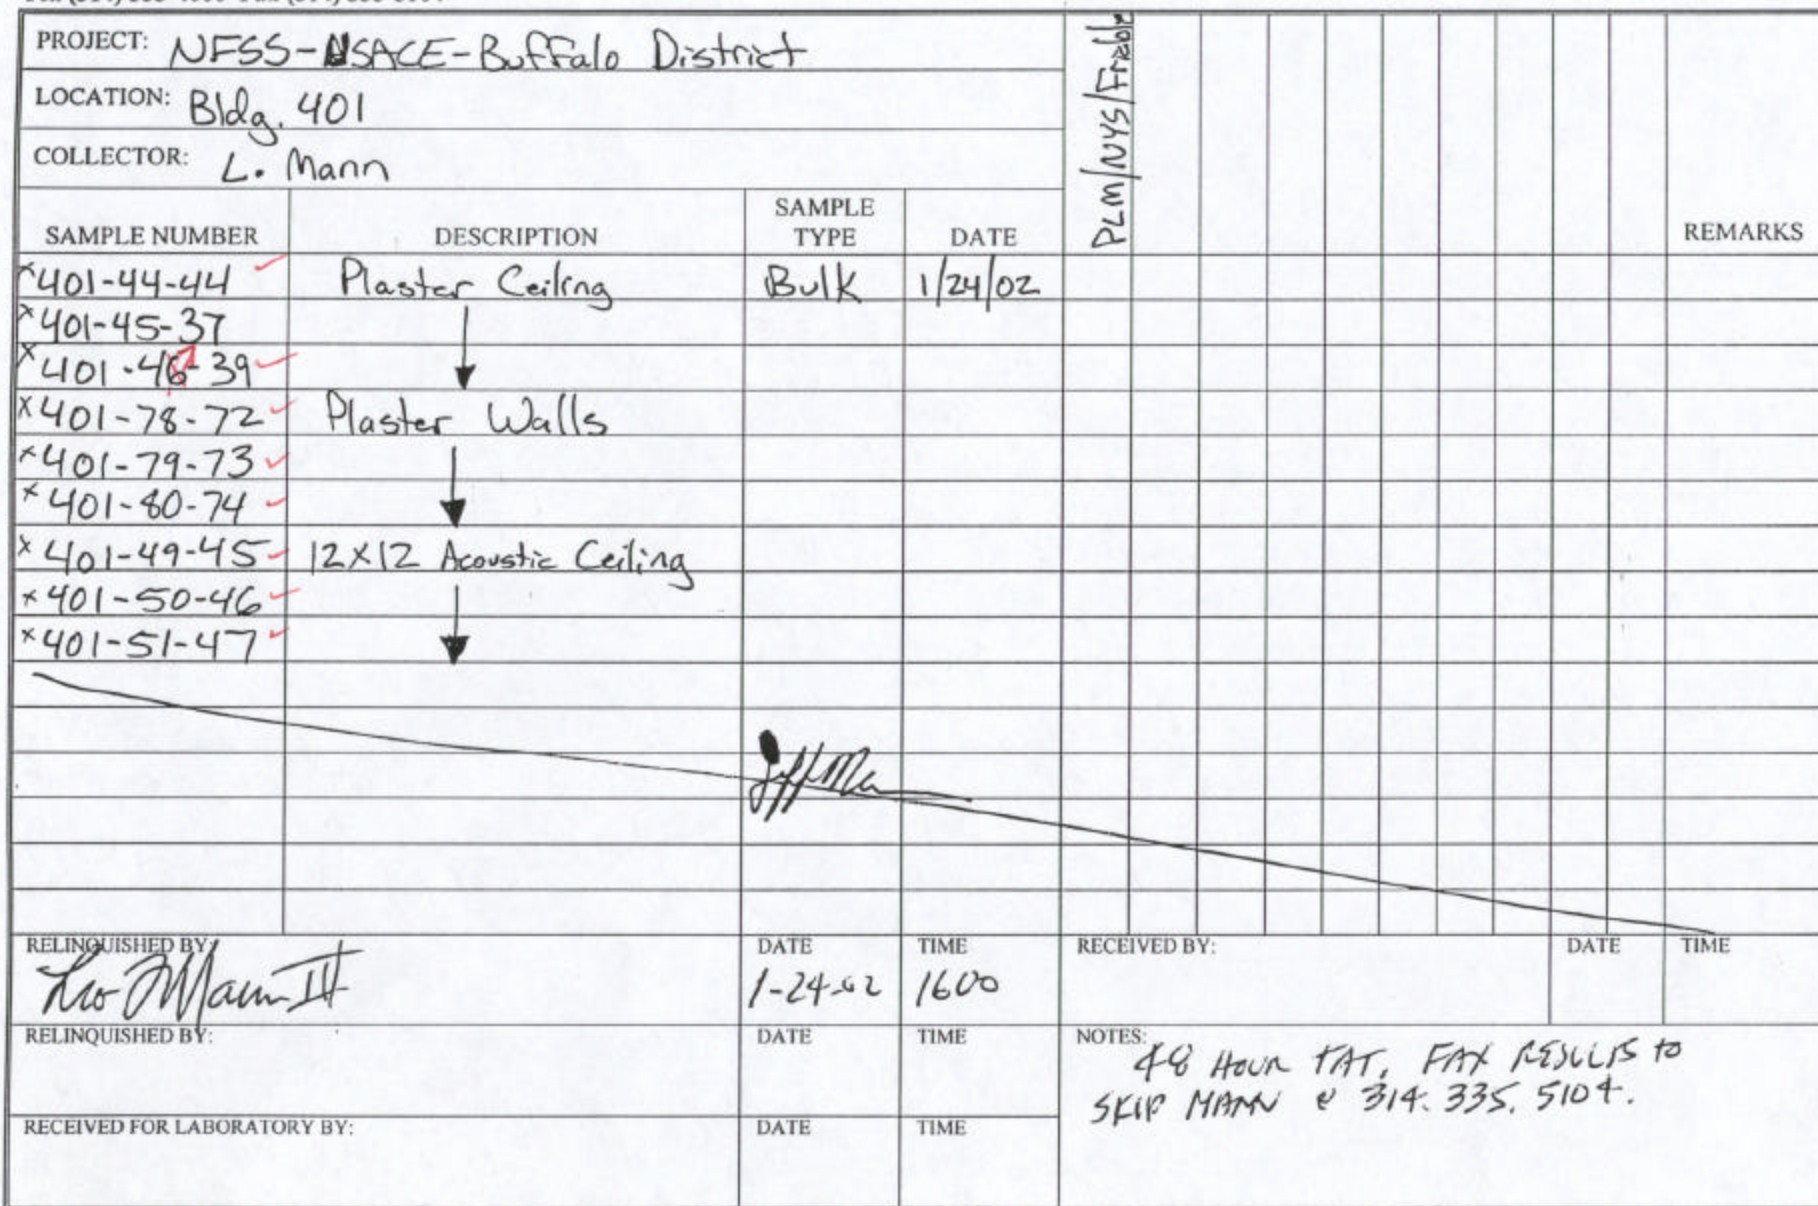 PROJECT: NFSS-USACE-Buffalo District
LOCATION: Bldg. 401
COLLECTOR: L. Mann
PLM/NYS/Friable
SAMPLE NUMBER DESCRIPTION SAMPLE TYPE DATE REMARKS
x401-44-44 Plaster Ceiling Bulk 1/24/02
x401-45-37
x401-46-39
x401-78-72 Plaster Walls
x401-79-73
x401-80-74
x401-49-45 12x12 Acoustic Ceiling
x401-50-46
x401-51-47
RELINQUISHED BY: DATE TIME RECEIVED BY: DATE TIME
Leo Mann III 1-24-02 1600
RELINQUISHED BY: DATE TIME NOTES:
48 HOUR TAT, FAX RESULTS to
SKIP MANN @ 314.335.5104.
RECEIVED FOR LABORATORY BY: DATE TIME